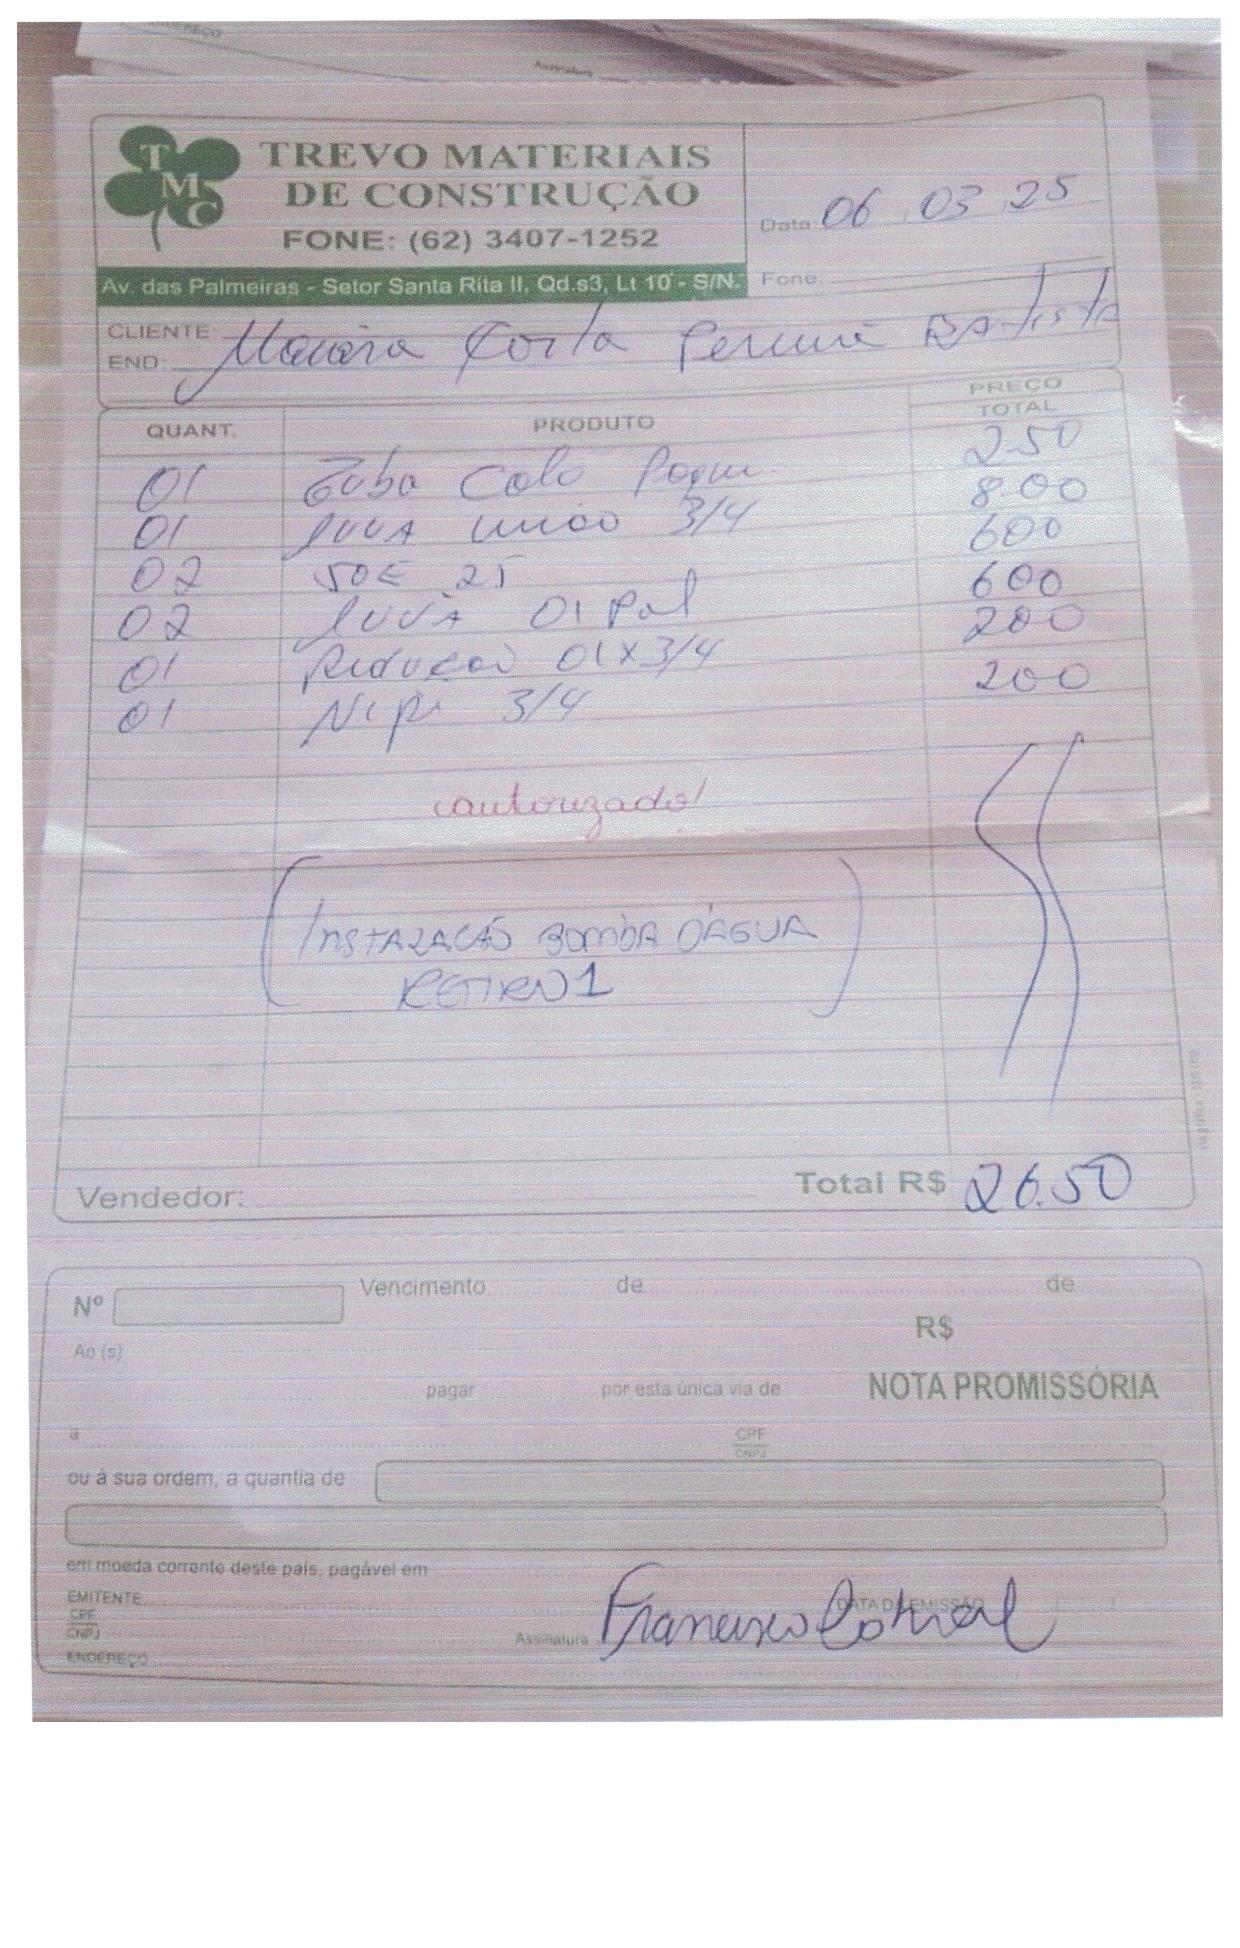 ENDEREÇO
Assinatura
TMC
TREVO MATERIAIS
DE CONSTRUÇÃO
FONE: (62) 3407-1252
Data 06 03 25
Av. das Palmeiras - Setor Santa Rita II, Qd.s3, Lt 10 - S/N.
Fone:
CLIENTE
END: Costa Batista
QUANT. PRODUTO PREÇO TOTAL
01 Tubo Colo 2.50
01 luva uniao 3/4 8.00
02 25 600
02 luva 01 Pol 600
01 Reducao 01x3/4 200
01 Nipi 3/4 200
autorizado!
(INSTALAÇÃO BOMBA D'ÁGUA
RETIRO 1)
Vendedor: Total R$ 26.50
Nº Vencimento de de
R$
Ao (s)
pagar por esta única via de NOTA PROMISSÓRIA
a CPF
CNPJ
ou à sua ordem, a quantia de
em moeda corrente deste país, pagável em
EMITENTE DATA DA EMISSÃO
CPF
CNPJ
Assinatura Francisco
ENDEREÇO